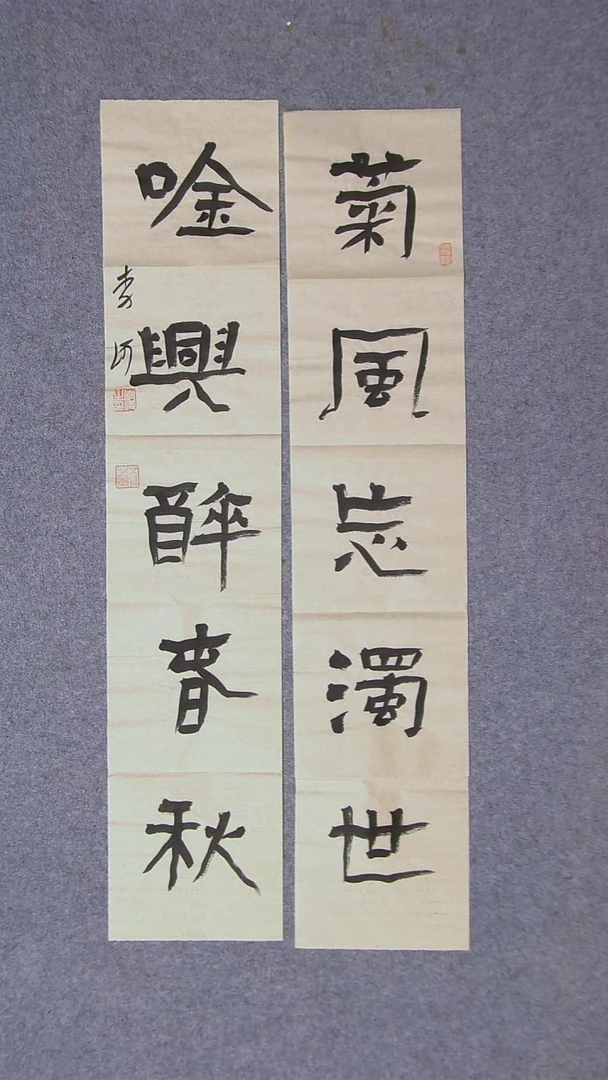 菊風忘濁世
唫興醉春秋